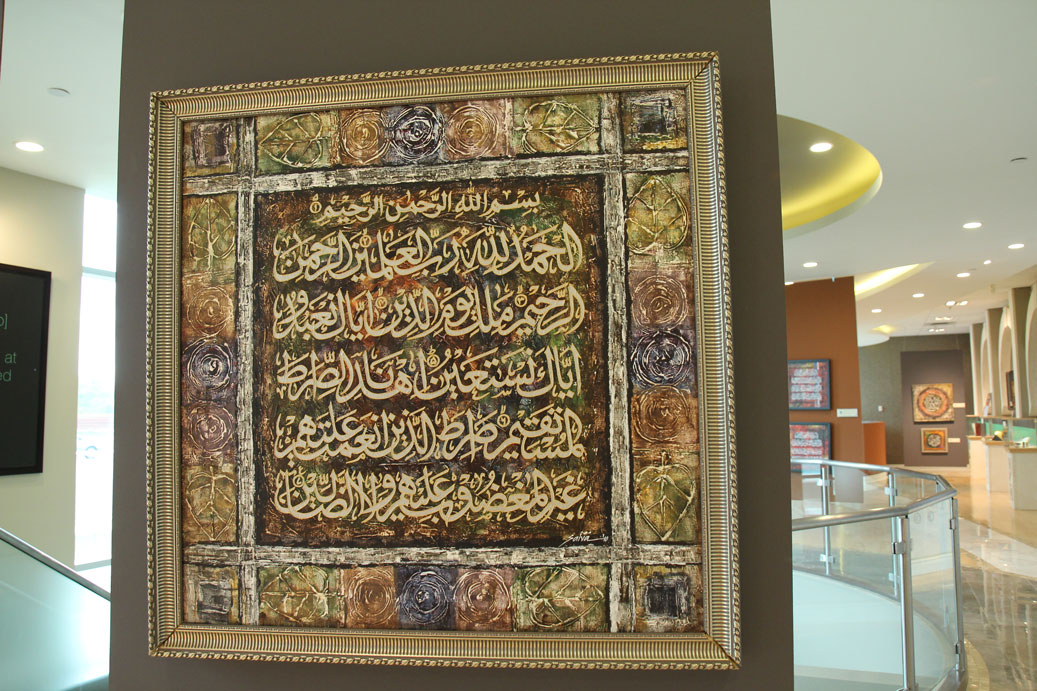 بِسْمِ اللهِ الرَّحْمٰنِ الرَّحِيْمِ
الحمد لله رب العلمين الرحمن
الرحيم ملك يوم الدين اياك نعبد و
اياك نستعين اهدنا الصرط
المستقيم صرط الذين انعمت عليهم
غير المغضوب عليهم ولا الضالين
o]
at
ed